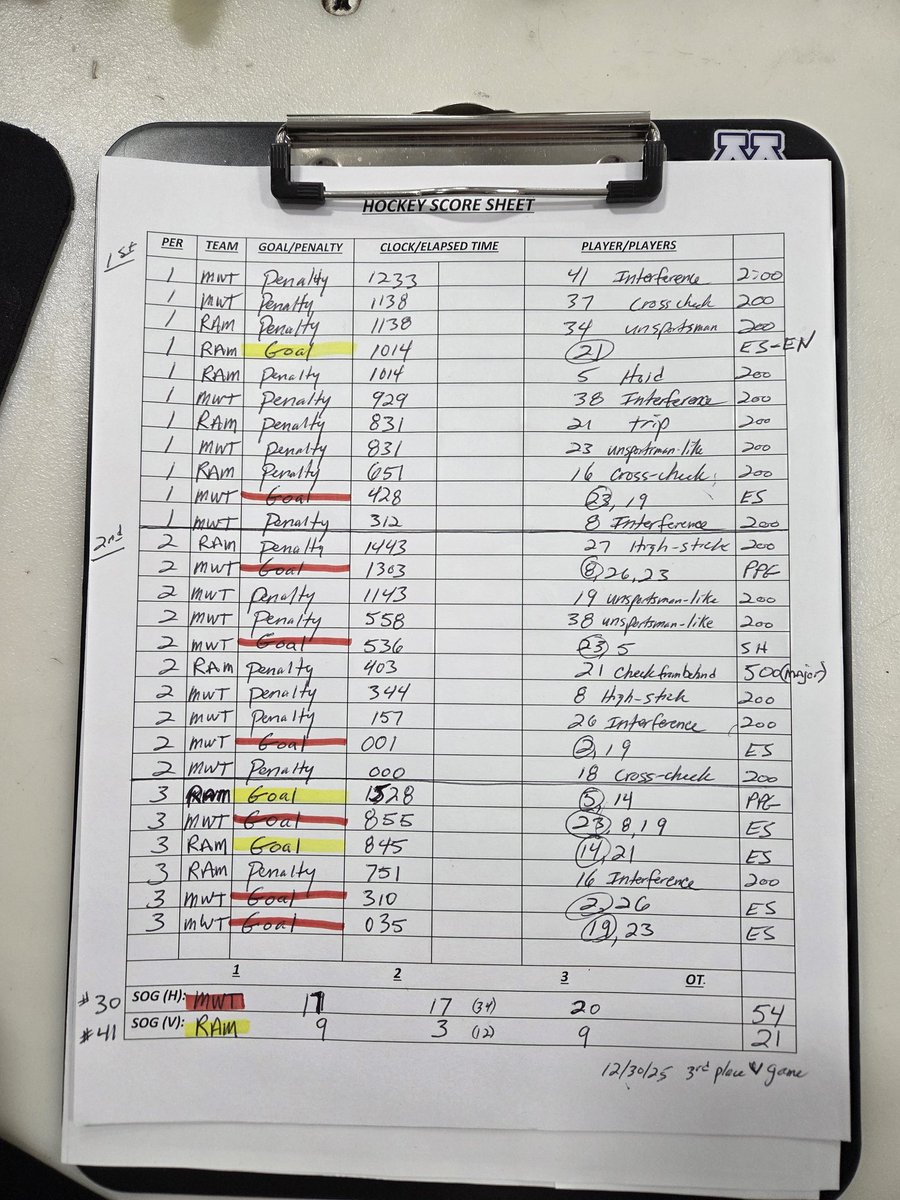 M
HOCKEY SCORE SHEET
1st
PER TEAM GOAL/PENALTY CLOCK/ELAPSED TIME PLAYER/PLAYERS
1 MWT Penalty 1233 41 Interference 2:00
1 MWT Penalty 1138 37 Cross check 200
1 RAM Penalty 1138 34 unsportsman 200
1 RAM Goal 1014 21 ES-EN
1 RAM Penalty 1014 5 Hold 200
1 MWT Penalty 929 38 Interference 200
1 RAM Penalty 831 21 trip 200
1 MWT Penalty 831 23 unsportsman-like 200
1 RAM Penalty 651 16 Cross-check 200
1 MWT Goal 428 23, 19 ES
1 MWT Penalty 312 8 Interference 200
2nd
2 RAM Penalty 1443 27 High-stick 200
2 MWT Goal 1303 8, 26, 23 PPG
2 MWT Penalty 1143 19 unsportsman-like 200
2 MWT Penalty 558 38 unsportsman-like 200
2 MWT Goal 536 23, 5 SH
2 RAM Penalty 403 21 Check from behind 500 (major)
2 MWT Penalty 344 8 High-stick 200
2 MWT Penalty 157 26 Interference 200
2 MWT Goal 001 2, 19 ES
2 MWT Penalty 000 18 Cross-check 200
3 RAM Goal 1528 5, 14 PPG
3 MWT Goal 855 23, 8, 19 ES
3 RAM Goal 845 14, 21 ES
3 RAM Penalty 751 16 Interference 200
3 MWT Goal 310 2, 26 ES
3 MWT Goal 035 19, 23 ES
1 2 3 OT.
#30 SOG (H): MWT 17 17 (34) 20 54
#41 SOG (V): RAM 9 3 (12) 9 21
12/30/25 3rd place game